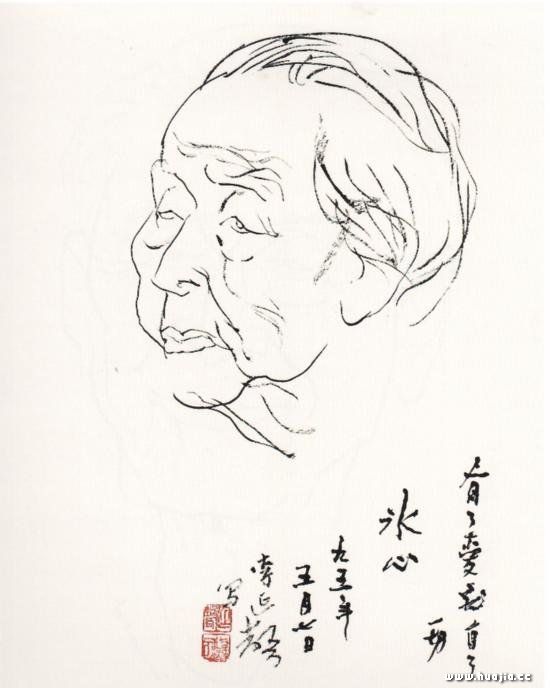 有了愛就有了
一切
冰心
九五年
五月七日
李延聲
写
www.huajia.cc